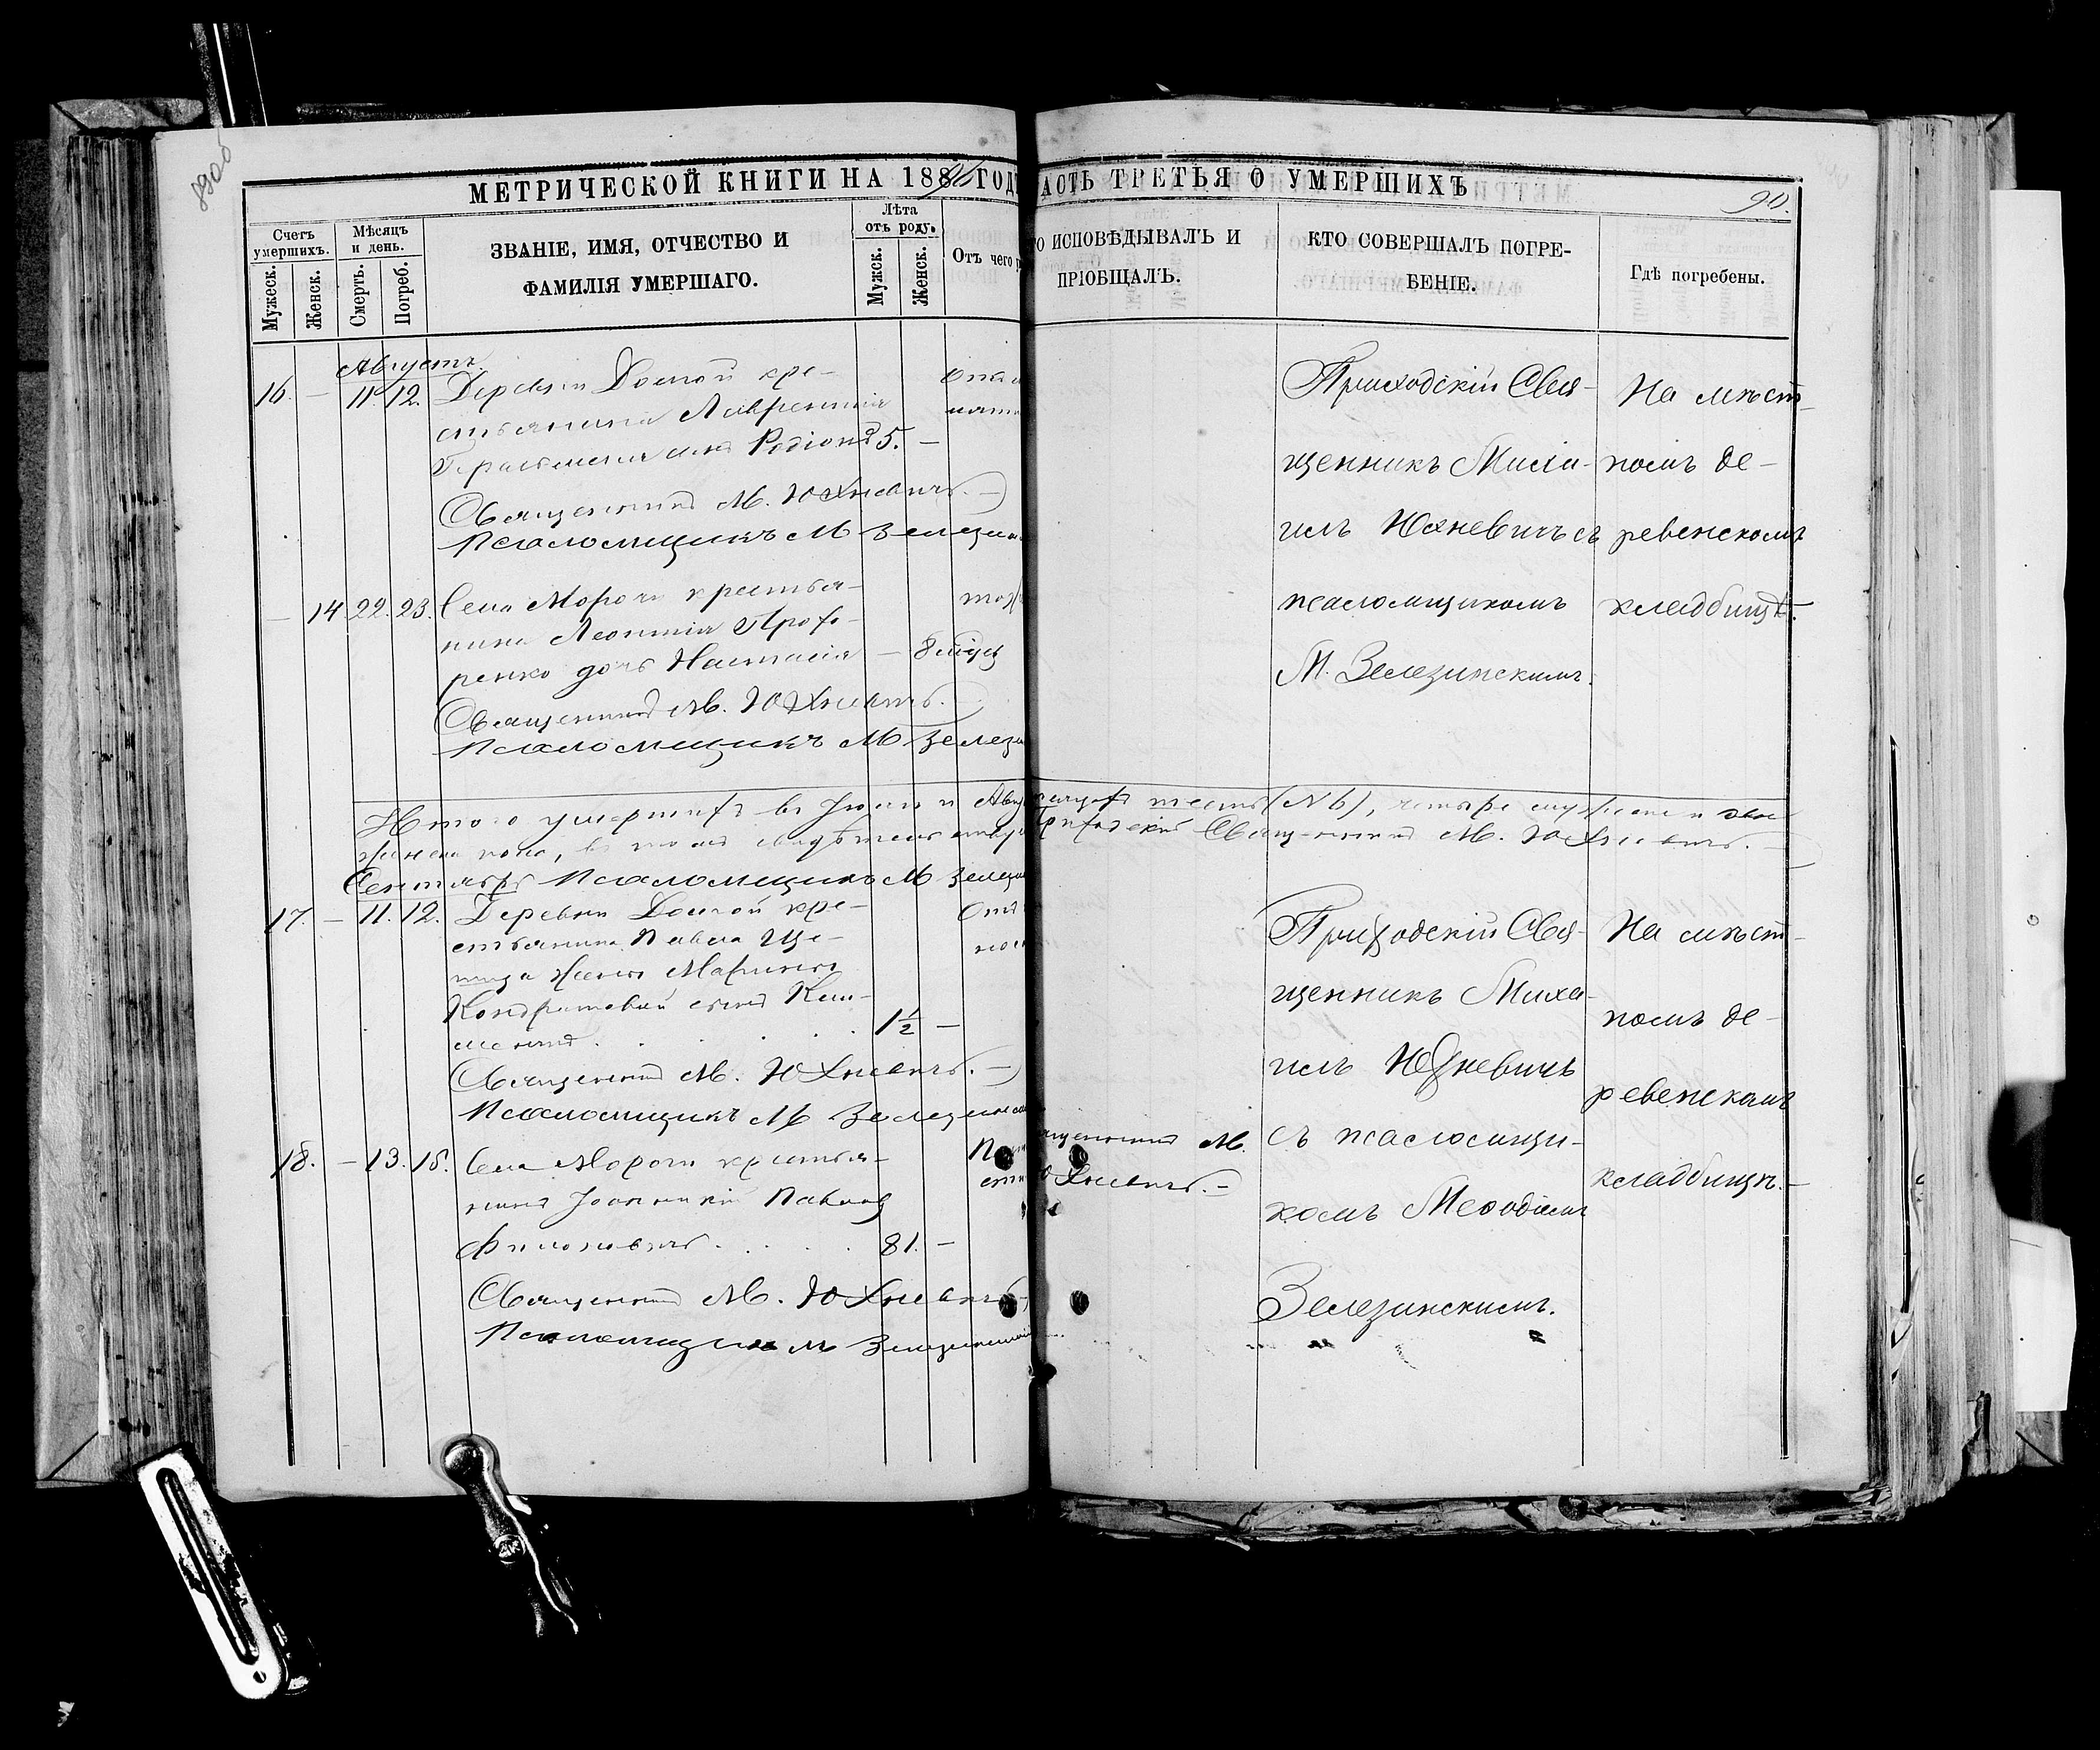 89об
МЕТРИЧЕСКОЙ КНИГИ НА 188 ГОДЪ
АСТЬ ТРЕТЬЯ О УМЕРШИХЪ
90.
Счетъ умершихъ.
Мужеск.
Женск.
Мѣсяцъ и день.
Смерть.
Погреб.
ЗВАНІЕ, ИМЯ, ОТЧЕСТВО И
ФАМИЛІЯ УМЕРШАГО.
Лѣта
отъ роду.
Мужск.
Женск.
Отъ чего
О ИСПОВѢДЫВАЛЪ И
ПРІОБЩАЛЪ.
КТО СОВЕРШАЛЪ ПОГРЕ-
БЕНІЕ.
Гдѣ погребены.
Августъ
16. — 11. 12. Деревни Долгой кре-
стьянина Лаврентія
сынъ Родіонъ 5. —
Священникъ М. Юхневичъ. —
Псаломщикъ М Зелезин
Приходскій Свя-
щенникъ Миха-
илъ Юхневичъ съ
псаломщикомъ
М. Зелезинскимъ.
На мѣст-
номъ де-
ревенскомъ
кладбищѣ.
— 14. 22. 23. Села Морочи крестья-
нина Леонтія Прохо-
ренко дочь Настасія — 8
Священникъ М. Юхневичъ.
Псаломщикъ М Зелези
Итого умершихъ въ Іюлѣ и Авгу шесть (№ 6), четыре мужеска и два
женска пола, въ томъ свидѣтельству Приходскій Священникъ М. Юхневичъ. —
Сентябрь Псаломщикъ М Зелези
17. — 11. 12. Деревни Долгой кре-
стьянина Павла Ще-
жены Марины
Кондратовой сынъ Кли-
ментъ . . . . . 1½ —
Священникъ М. Юхневичъ. —
Псаломщикъ М Зелезинск
Приходскій Свя-
щенникъ Миха-
илъ Юхневичъ
съ псаломщи-
комъ Меѳодіемъ
Зелезинскимъ.
На мѣст-
номъ де-
ревенскомъ
кладбищѣ. —
18. — 13. 15. Села Морочи крестья-
нинъ Іоанникій Павловъ
Филоновичъ . . . . 81. —
щенникъ М.
Юхневичъ. —
Священникъ М. Юхневичъ
Псаломщикъ М Зелезинскій